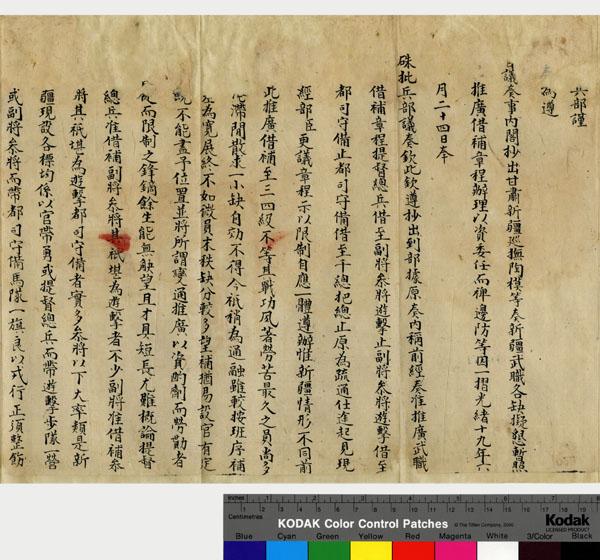 兵部謹
為遵
議奏事內閣抄出甘肅新疆巡撫陶模等奏新疆武職各缺擬懇暫照
推廣借補章程辦理以資委任而裨邊防等因一摺光緒十九年六
月二十四日奉
硃批兵部議奏欽此欽遵抄出到部據原奏內稱前經奏准推廣武職
借補章程提督總兵借至副將參將遊擊止副將參將遊擊借至
都司守備止都司守備借至千總把總止原為疏通仕途起見現
經部臣更議章程示以限制自應一體遵辦惟新疆情形不同前
此推廣借補至三四級不等且戰功夙著勞苦最久之員尚多
滯閒散求一小缺自効不得今祇稍為通融雖較按班序補
為寬展終不如微員末秩缺分較多望補猶易設官有定
既不能盡予位置並將所謂變通推廣以資酌劑而勞勩者
從而限制之鋒鏑餘生能無觖望且才具短長尤難概論提督
總兵准借補副將參將其祇堪為遊擊者不少副將准借補參
將其祇堪為遊擊都司守備者實多參將以下大率類是新
疆現設各標均係以官帶勇或提督總兵而帶遊擊步隊一營
或副將參將而帶都司守備馬隊一旗良以戎行正須整飭
Inches
Centimetres
KODAK Color Control Patches
© The Tiffen Company, 2000
Kodak
LICENSED PRODUCT
Blue Cyan Green Yellow Red Magenta White 3/Color Black